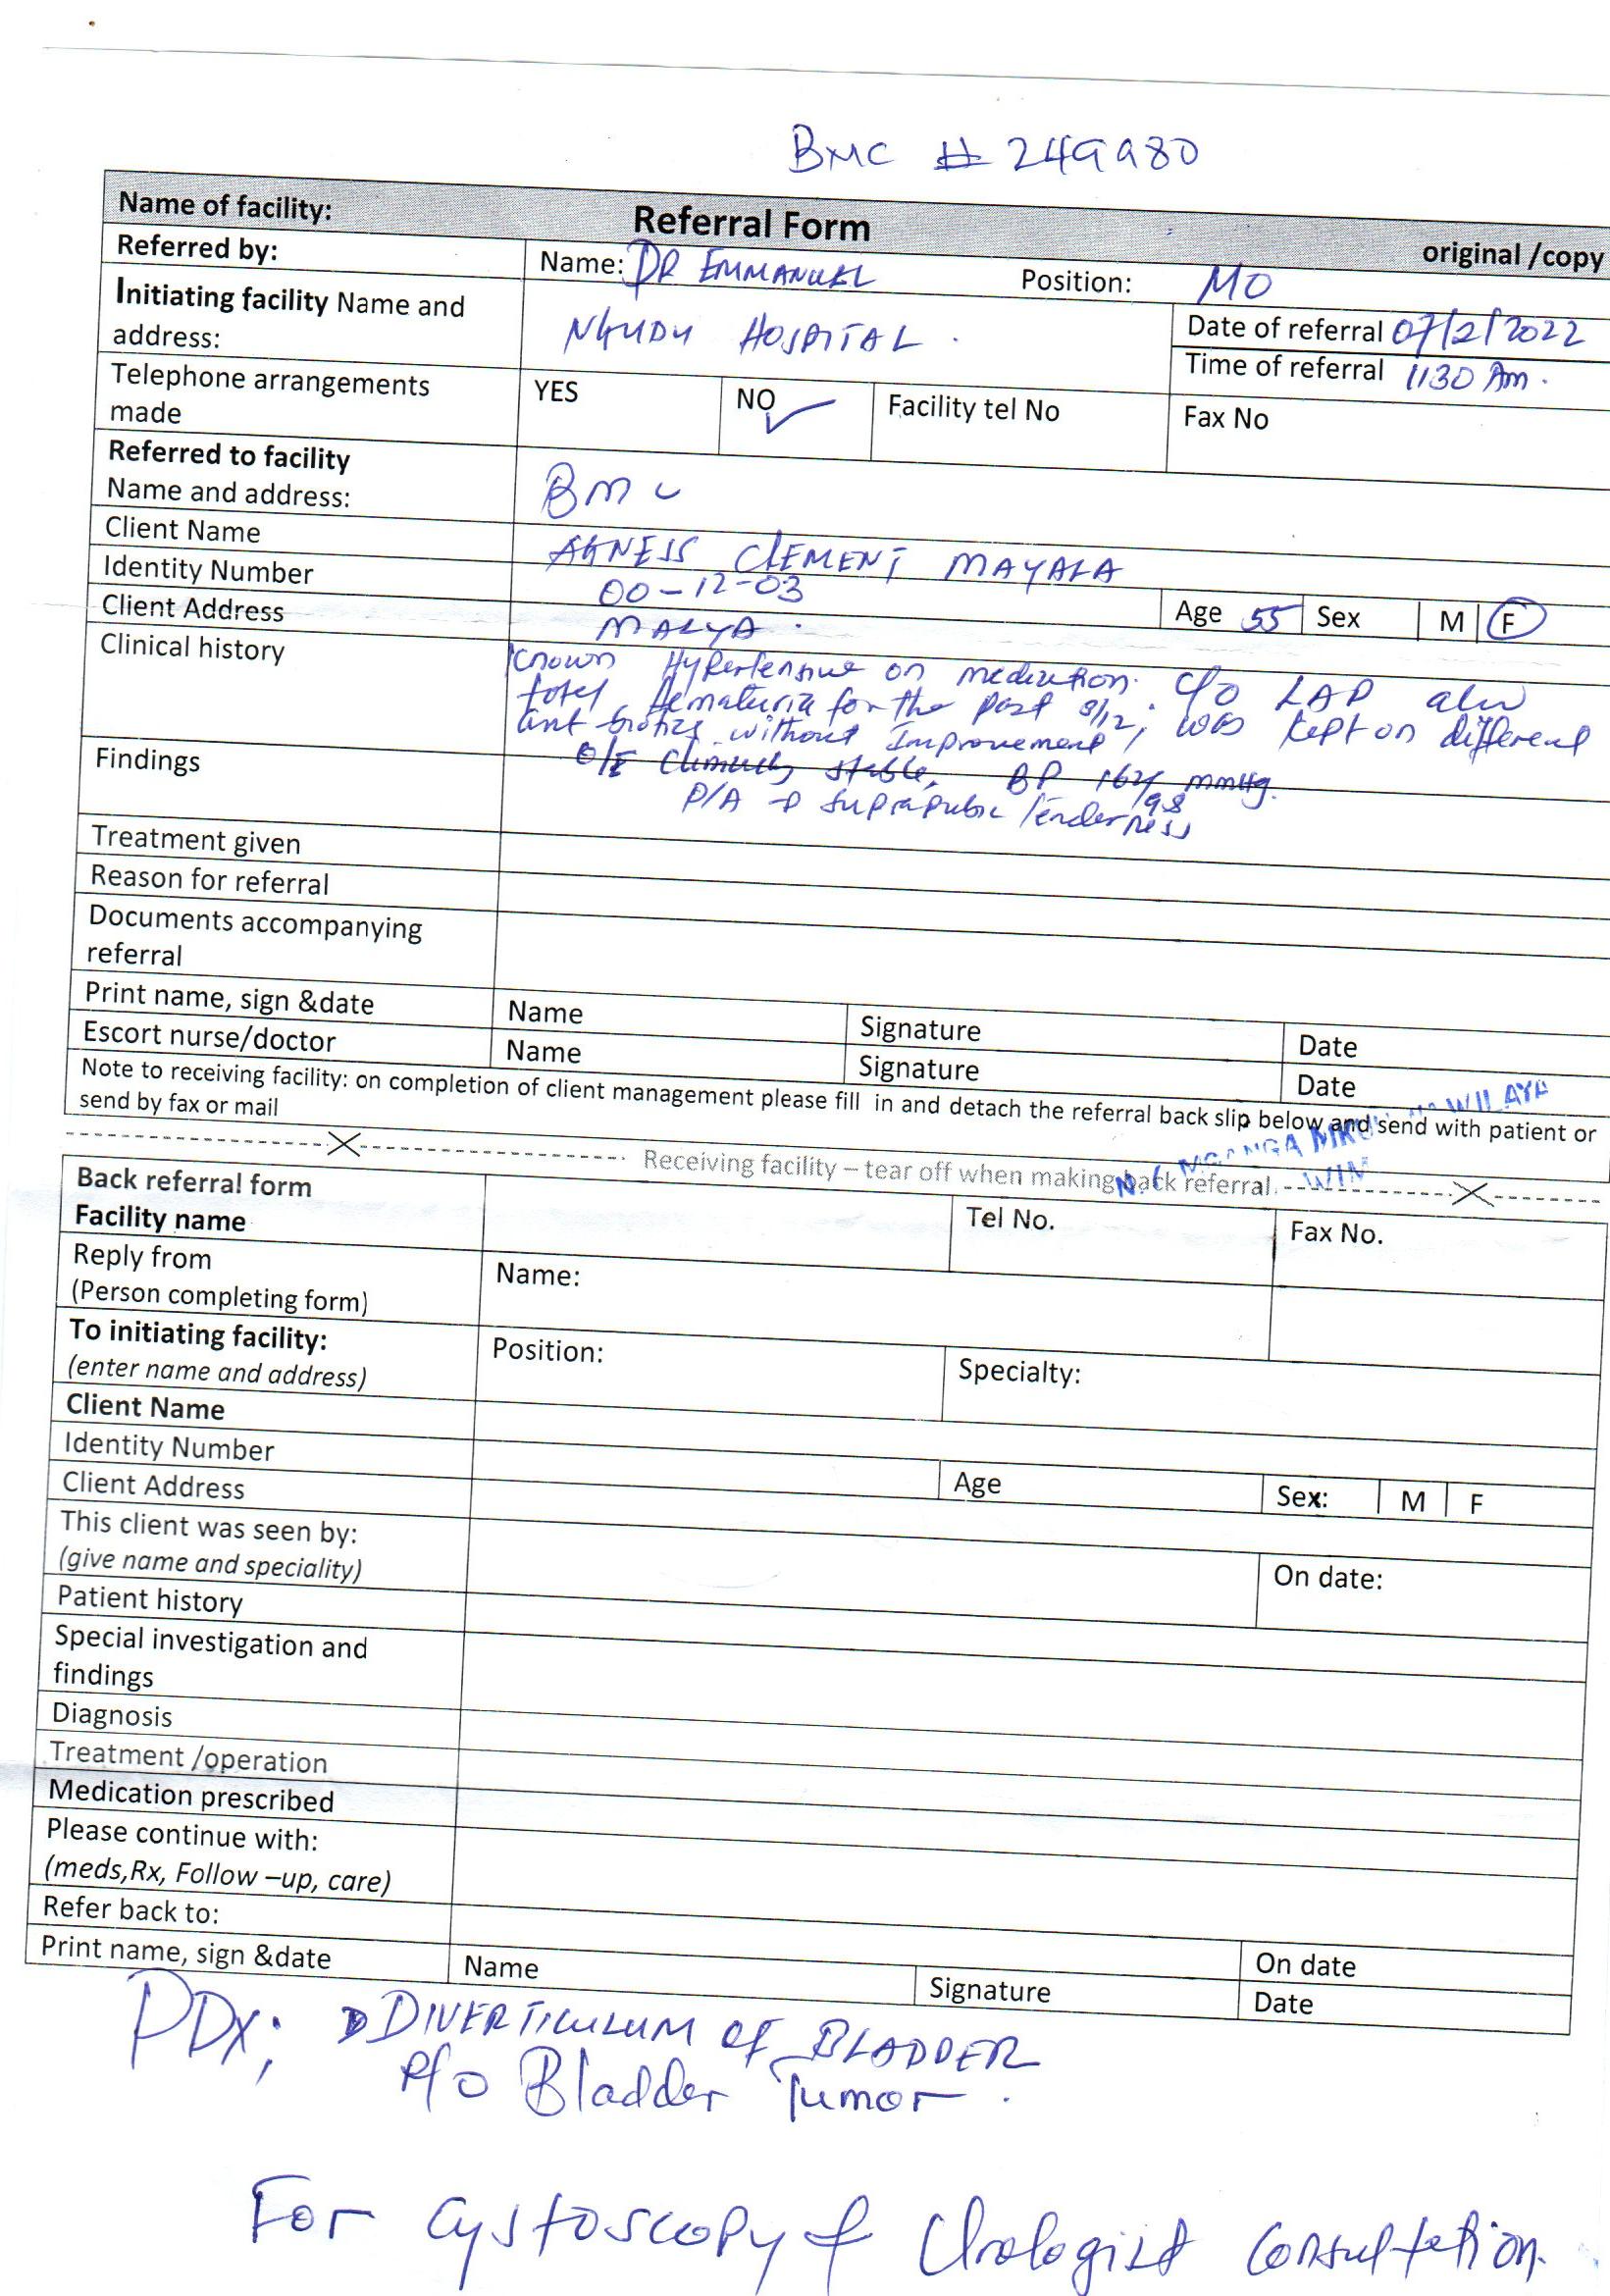 BMC # 249980
Name of facility: Referral Form original /copy
Referred by: Name: DR EMMANUEL Position: MO
Initiating facility Name and address: NGUDU HOSPITAL. Date of referral 07/2/2022
Time of referral 1130 Am.
Telephone arrangements made YES NO ✓ Facility tel No Fax No
Referred to facility
Name and address: BMC
Client Name AGNESS CLEMENT MAYALA
Identity Number 00-12-03 Age 55 Sex M F
Client Address MALYA.
Clinical history Known Hypertensive on medication. C/O LAP also
total Hematuria for the past /12, was kept on different
antibiotics without Improvement,
Findings O/E Clinically stable, BP 162/98 mmHg.
P/A → suprapubic tenderness
Treatment given
Reason for referral
Documents accompanying
referral
Print name, sign &date Name Signature Date
Escort nurse/doctor Name Signature Date
Note to receiving facility: on completion of client management please fill in and detach the referral back slip below and send with patient or
send by fax or mail
WILAYA
MGANGA
Receiving facility – tear off when making back referral.
Back referral form
Facility name Tel No. Fax No.
Reply from
(Person completing form) Name:
To initiating facility:
(enter name and address) Position: Specialty:
Client Name
Identity Number Age Sex: M F
Client Address
This client was seen by:
(give name and speciality) On date:
Patient history
Special investigation and
findings
Diagnosis
Treatment /operation
Medication prescribed
Please continue with:
(meds,Rx, Follow –up, care)
Refer back to: On date
Print name, sign &date Name Signature Date
PDx; DIVERTICULUM OF BLADDER
P/o Bladder Tumor.
For Cystoscopy & Urologist Consultation.